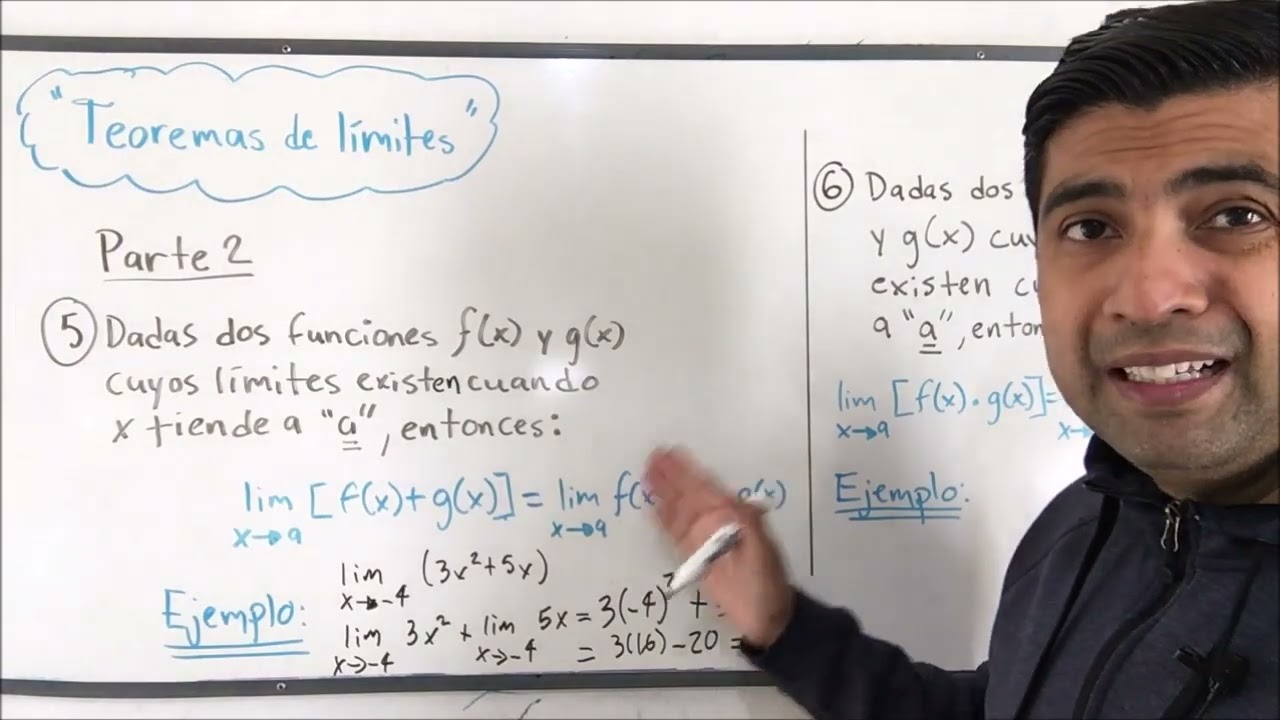 "Teoremas de límites"
Parte 2
⑤ Dadas dos funciones f(x) y g(x)
cuyos límites existen cuando
x tiende a "a", entonces:
lim [f(x)+g(x)] = lim f(x g(x)
x→a x→a
Ejemplo:
lim (3x²+5x)
x→-4
lim 3x² + lim 5x = 3(-4)² +
x→-4 x→-4
= 3(16) - 20 =
⑥ Dadas dos
y g(x)
existen
a "a",
lim [f(x)·g(x)]=
x→a x→
Ejemplo: